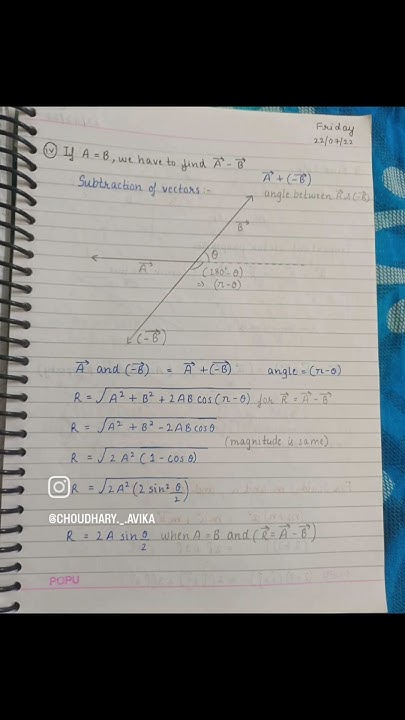 Friday
22/07/22
(iv) If A = B, we have to find A⃗ - B⃗
Subtraction of vectors :-
A⃗ + (-B⃗)
angle between A⃗ & (-B⃗)
B⃗
θ
A⃗
(180°-θ)
⇒ (π-θ)
(-B⃗)
A⃗ and (-B⃗) = A⃗ + (-B⃗) angle = (π-θ)
R = √A² + B² + 2AB cos(π-θ) for R⃗ = A⃗ - B⃗
R = √A² + B² - 2AB cosθ
(magnitude is same)
R = √2A² (1 - cosθ)
R = √2A² (2 sin² θ/2)
@CHOUDHARY._.AVIKA
R = 2A sin θ/2 when A = B and (R⃗ = A⃗ - B⃗)
POPU